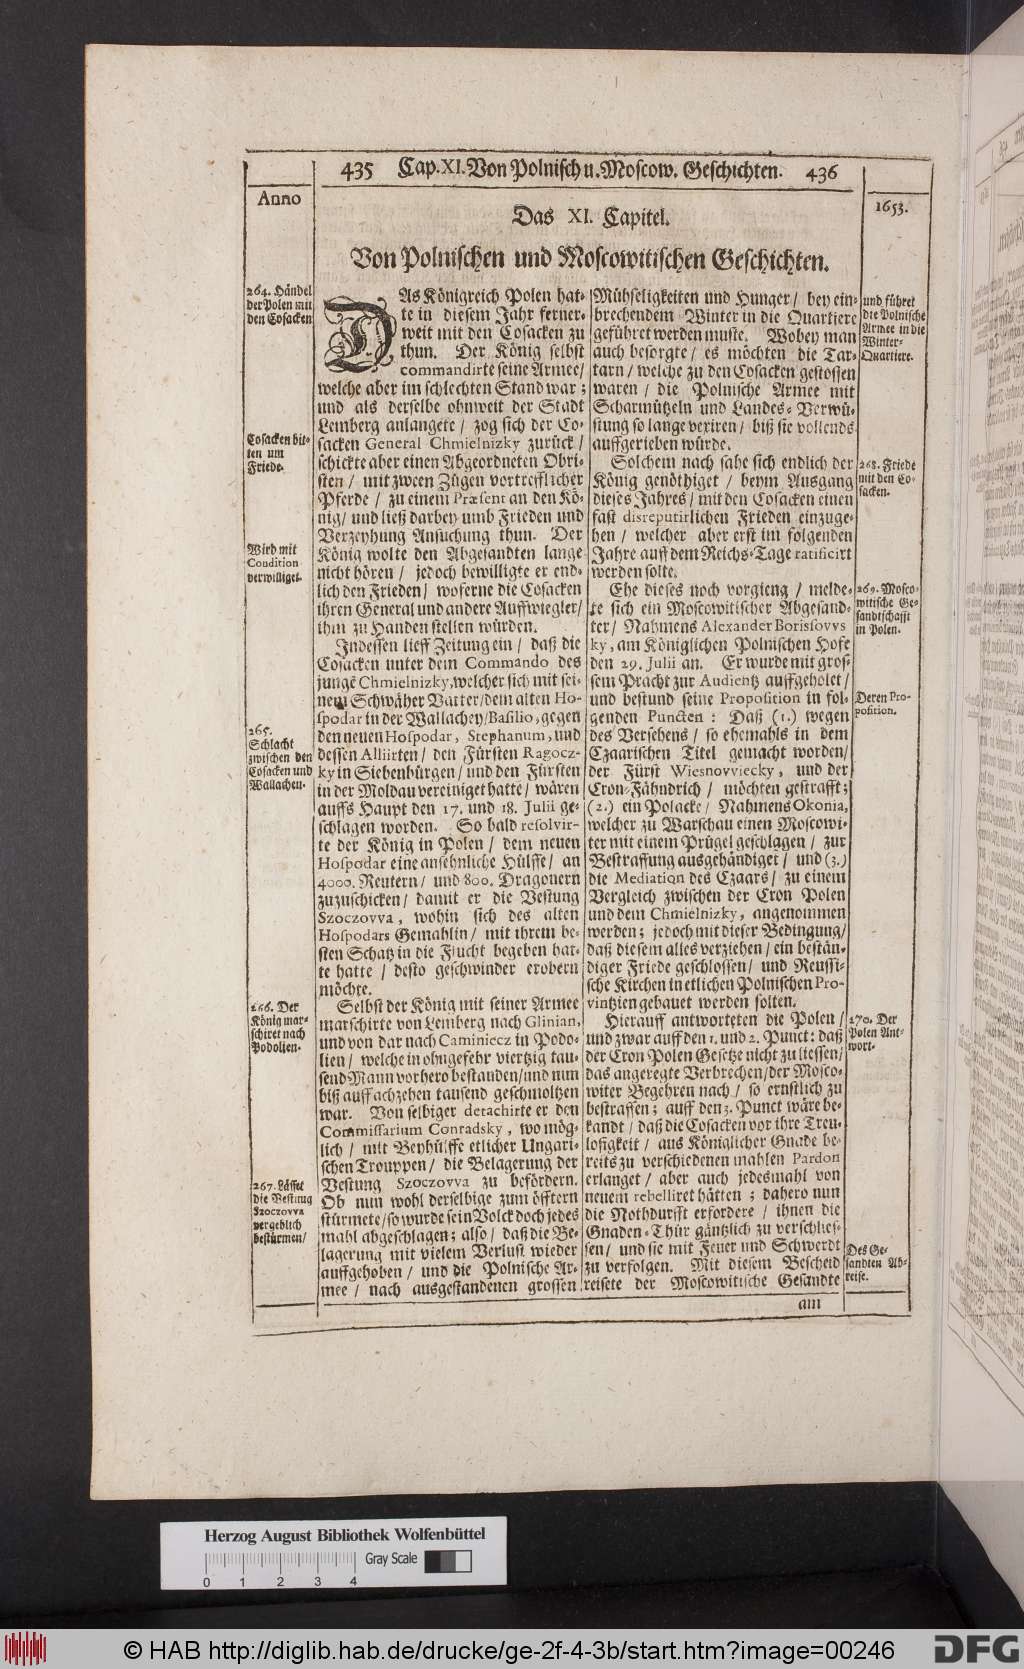 435 Cap. XI. Von Polnisch u. Moscow. Geschichten. 436
Anno
1653.
Das XI. Capitel.
Von Polnischen und Moscowitischen Geschichten.
264. Händel
der Polen mit
den Cosacken
Cosacken bit-
ten um
Friede.
Wird mit
Condition
verwilliget.
265.
Schlacht
zwischen den
Cosacken und
Wallachen.
266. Der
König mar-
schiret nach
Podolien.
267. Lässet
die Vestung
Szoczovva
vergeblich
bestürmen/
DAs Königreich Polen hat-
te in diesem Jahr ferner-
weit mit den Cosacken zu
thun. Der König selbst
commandirte seine Armee/
welche aber im schlechten Stand war;
und als derselbe ohnweit der Stadt
Lemberg anlangete/ zog sich der Co-
sacken General Chmielnizky zurück/
schickte aber einen Abgeordneten Obri-
sten/ mit zween Zügen vortrefflicher
Pferde/ zu einem Præsent an den Kö-
nig/ und ließ darbey umb Frieden und
Verzeyhung Ansuchung thun. Der
König wolte den Abgesandten lange
nicht hören/ jedoch bewilligte er end-
lich den Frieden/ woferne die Cosacken
ihren General und andere Auffwiegler/
ihm zu Handen stellen würden.
Indessen lieff Zeitung ein/ daß die
Cosacken unter dem Commando des
jungē Chmielnizky, welcher sich mit sei-
nem Schwäher Vatter/ dem alten Ho-
spodar in der Wallachey/ Basilio, gegen
den neuen Hospodar, Stephanum, und
dessen Alliirten/ den Fürsten Ragocz-
ky in Siebenbürgen/ und den Fürsten
in der Moldau vereiniget hatte/ wären
auffs Haupt den 17. und 18. Julii ge-
schlagen worden. So bald resolvir-
te der König in Polen/ dem neuen
Hospodar eine ansehnliche Hülffe/ an
4000. Reutern/ und 800. Dragonern
zuzuschicken/ damit er die Vestung
Szoczovva, wohin sich des alten
Hospodars Gemahlin/ mit ihrem be-
sten Schatz in die Flucht begeben hat-
te hatte/ desto geschwinder erobern
möchte.
Selbst der König mit seiner Armee
marschirte von Lemberg nach Glinian,
und von dar nach Caminiecz in Podo-
lien/ welche in ohngefehr viertzig tau-
send Mann vorhero bestanden/ und nun
biß auff achzehen tausend geschmoltzen
war. Von selbiger detachirte er den
Commissarium Conradsky, wo mög-
lich/ mit Beyhülffe etlicher Ungari-
schen Trouppen/ die Belagerung der
Vestung Szoczovva zu befördern.
Ob nun wohl derselbige zum öfftern
stürmete/ so wurde sein Volck doch jedes
mahl abgeschlagen; also/ daß die Be-
lagerung mit vielem Verlust wieder
auffgehoben/ und die Polnische Ar-
mee/ nach ausgestandenen grossen
Mühseligkeiten und Hunger/ bey ein-
brechendem Winter in die Quartiere
geführet werden muste. Wobey man
auch besorgte/ es möchten die Tar-
tarn/ welche zu den Cosacken gestossen
waren/ die Polnische Armee mit
Scharmützeln und Landes-Verwü-
stung so lange vexiren/ biß sie vollends
auffgerieben würde.
Solchem nach sahe sich endlich der
König genöthiget/ beym Ausgang
dieses Jahres/ mit den Cosacken einen
fast disreputirlichen Frieden einzuge-
hen/ welcher aber erst im folgenden
Jahre auff dem Reichs-Tage ratificirt
werden solte.
Ehe dieses noch vorgieng/ melde-
te sich ein Moscowitischer Abgesand-
ter/ Nahmens Alexander Borissovvs
ky, am Königlichen Polnischen Hofe
den 29. Julii an. Er wurde mit gros-
sem Pracht zur Audientz auffgeholet/
und bestund seine Proposition in fol-
genden Puncten: Daß (1.) wegen
des Versehens/ so ehemahls in dem
Czaarischen Titel gemacht worden/
der Fürst Wiesnovviecky, und der
Cron-Fähndrich/ möchten gestrafft;
(2.) ein Polacke/ Nahmens Okonia,
welcher zu Warschau einen Moscowi-
ter mit einem Prügel geschlagen/ zur
Bestraffung ausgehändiget/ und (3.)
die Mediation des Czaars/ zu einem
Vergleich zwischen der Cron Polen
und dem Chmielnizky, angenommen
werden; jedoch mit dieser Bedingung/
daß diesem alles verziehen/ ein bestän-
diger Friede geschlossen/ und Reussi-
sche Kirchen in etlichen Polnischen Pro-
vintzien gebauet werden solten.
Hierauff antworteten die Polen/
und zwar auff den 1. und 2. Punct: daß
der Cron Polen Gesetze nicht zu liessen/
das angeregte Verbrechen/ der Mosco-
witer Begehren nach/ so ernstlich zu
bestraffen; auff den 3. Punct wäre be-
kandt/ daß die Cosacken vor ihre Treu-
losigkeit/ aus Königlicher Gnade be-
reits zu verschiedenen mahlen Pardon
erlanget/ aber auch jedesmahl von
neuem rebelliret hätten; dahero nun
die Nothdurfft erfordere/ ihnen die
Gnaden-Thür gäntzlich zu verschlies-
sen/ und sie mit Feuer und Schwerdt
zu verfolgen. Mit diesem Bescheid
reisete der Moscowitische Gesandte
am
und führet
die Polnische
Armee in die
Winter-
Quartiere.
268. Friede
mit den Co-
sacken.
269. Mosco-
witische Ge-
sandtschafft
in Polen.
Deren Pro-
position.
270. Der
Polen Ant-
wort.
Des Ge-
sandten Ab-
reise.
Herzog August Bibliothek Wolfenbüttel
Gray Scale
0 1 2 3 4
© HAB http://diglib.hab.de/drucke/ge-2f-4-3b/start.htm?image=00246
DFG